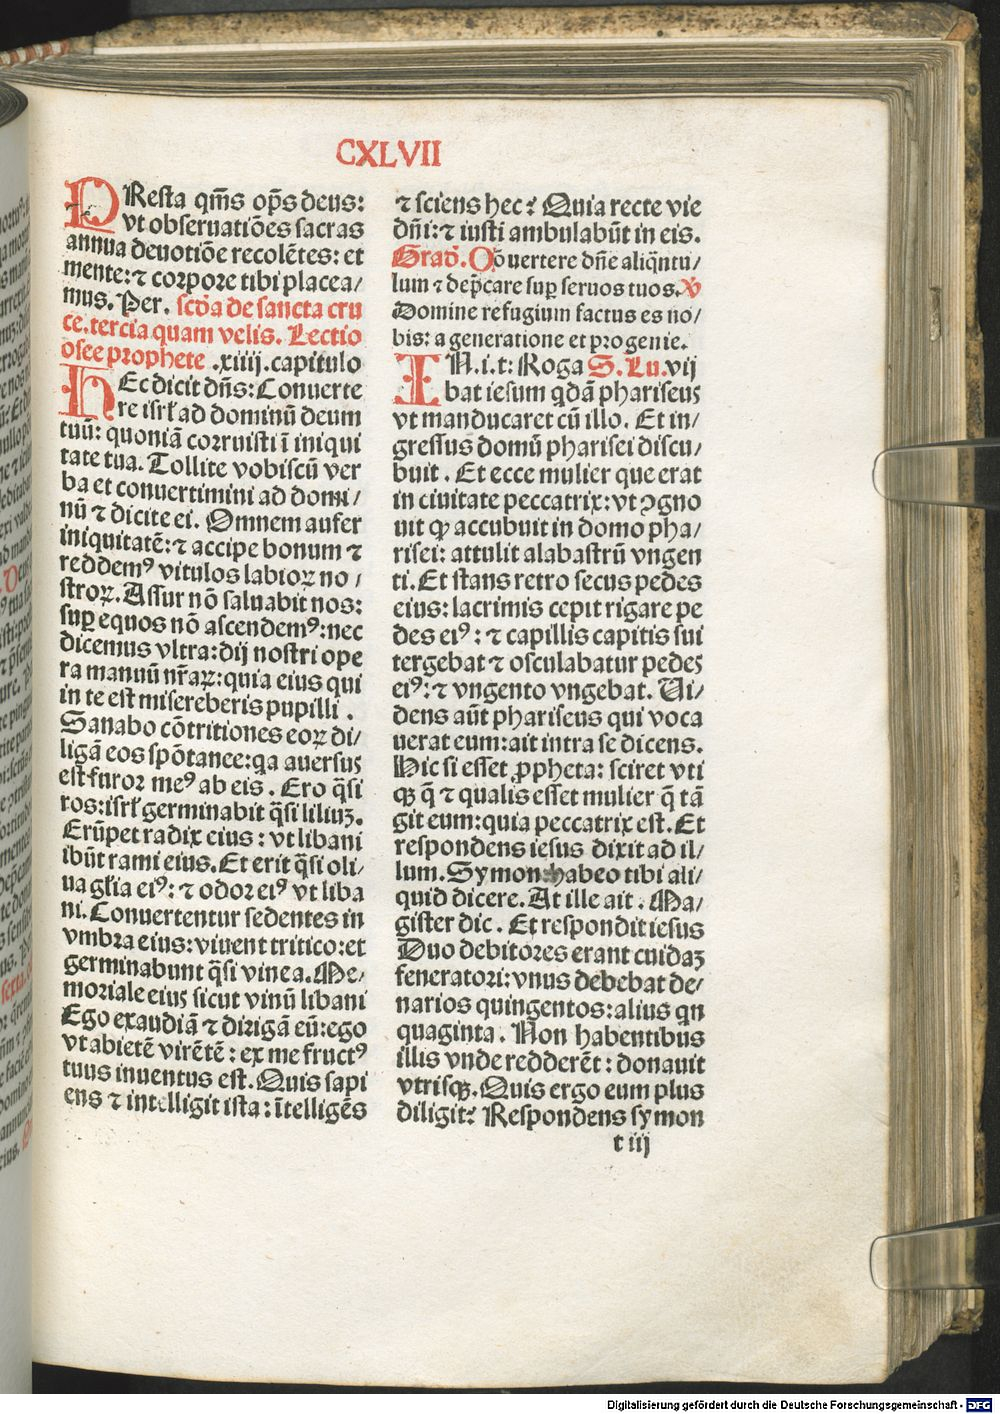 CXLVII
PResta qm̄s op̄s deus:
vt obseruatiōes sacras
annua deuotiōe recolētes: et
mente: ⁊ corpore tibi placea/
mus. Per. scďa de sancta cru
ce. tercia quam velis. Lectio
osee prophete .xiiij. capitulo
HEc dicit dn̄s: Conuerte
re isrł ad dominū deum
tuū: quoniā corruisti ī iniqui
tate tua. Tollite vobiscū ver
ba et conuertimini ad domi/
nū ⁊ dicite ei. Omnem aufer
iniquitatē: ⁊ accipe bonum ⁊
reddemꝰ vitulos labioꝝ no/
stroꝝ. Assur nō saluabit nos:
suꝑ equos nō ascendemꝰ: nec
dicemus vltra: dij nostri ope
ra manuū nr̄aꝝ: quia eius qui
in te est misereberis pupilli.
Sanabo cōtritiones eoꝝ di/
ligā eos spōtance: qa auersus
est furor meꝰ ab eis. Ero q̄si
ros: isrł germinabit q̄si liliuꝫ.
Erūpet radix eius: vt libani
ibūt rami eius. Et erit q̄si oli/
ua głia eiꝰ: ⁊ odor eiꝰ vt liba
ni. Conuertentur sedentes in
vmbra eius: viuent tritico: et
germinabunt q̄si vinea. Me/
moriale eius sicut vinū libani
Ego exaudiā ⁊ dirigā eū: ego
vt abietē virētē: ex me fructꝰ
tuus inuentus est. Quis sapi
ens ⁊ intelligit ista: ītelligēs
⁊ sciens hec? Quia recte vie
dn̄i: ⁊ iusti ambulabūt in eis.
Grad̄. Cōuertere dn̄e aliq̄ntu/
lum ⁊ dep̄care suꝑ seruos tuos. V̄
Domine refugium factus es no/
bis: a generatione et progenie.
IN.i.t: Roga S. Lu. vij
bat iesum qdā phariseus
vt manducaret cū illo. Et in/
gressus domū pharisei discu/
buit. Et ecce mulier que erat
in ciuitate peccatrix: vt ꝯgno
uit ꝙ accubuit in domo pha/
risei: attulit alabastrū vngen
ti. Et stans retro secus pedes
eius: lacrimis cepit rigare pe
des eiꝰ: ⁊ capillis capitis sui
tergebat ⁊ osculabatur pedes
eiꝰ: ⁊ vngento vngebat. Ui/
dens aūt phariseus qui voca
uerat eum: ait intra se dicens.
Hic si esset ꝓpheta: sciret vti
qꝫ q̄ ⁊ qualis esset mulier q̄ tā
git eum: quia peccatrix est. Et
respondens iesus dixit ad il/
lum. Symon habeo tibi ali/
quid dicere. At ille ait. Ma/
gister dic. Et respondit iesus
Duo debitores erant cuidaꝫ
feneratori: vnus debebat de/
narios quingentos: alius qn
quaginta. Non habentibus
illis vnde redderēt: donauit
vtrisqꝫ. Quis ergo eum plus
diligit? Respondens symon
t iij
Digitalisierung gefördert durch die Deutsche Forschungsgemeinschaft - DFG